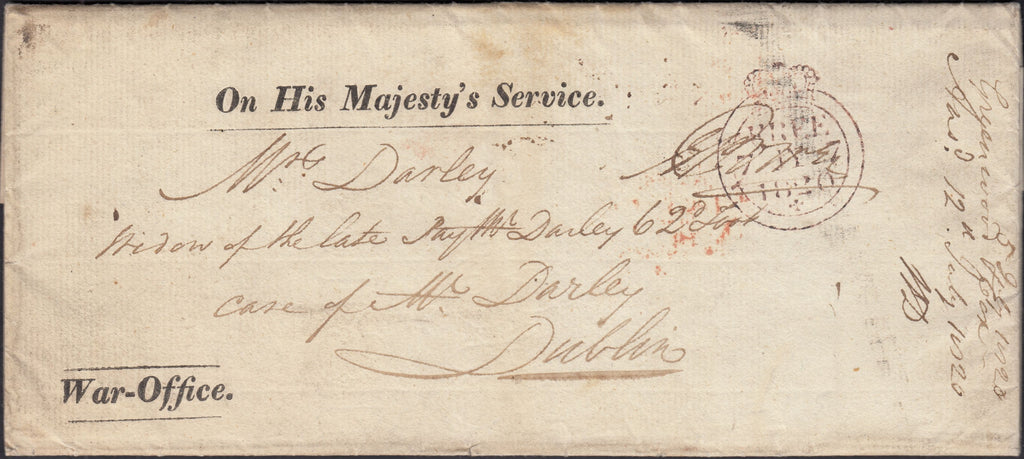 On His Majesty's Service.
Mrs. Darley
Widow of the late Pay Mr. Darley 62 Foot
care of Mr. Darley
Dublin
War-Office.
FREE
1820
5 July 1820
12th July 1820